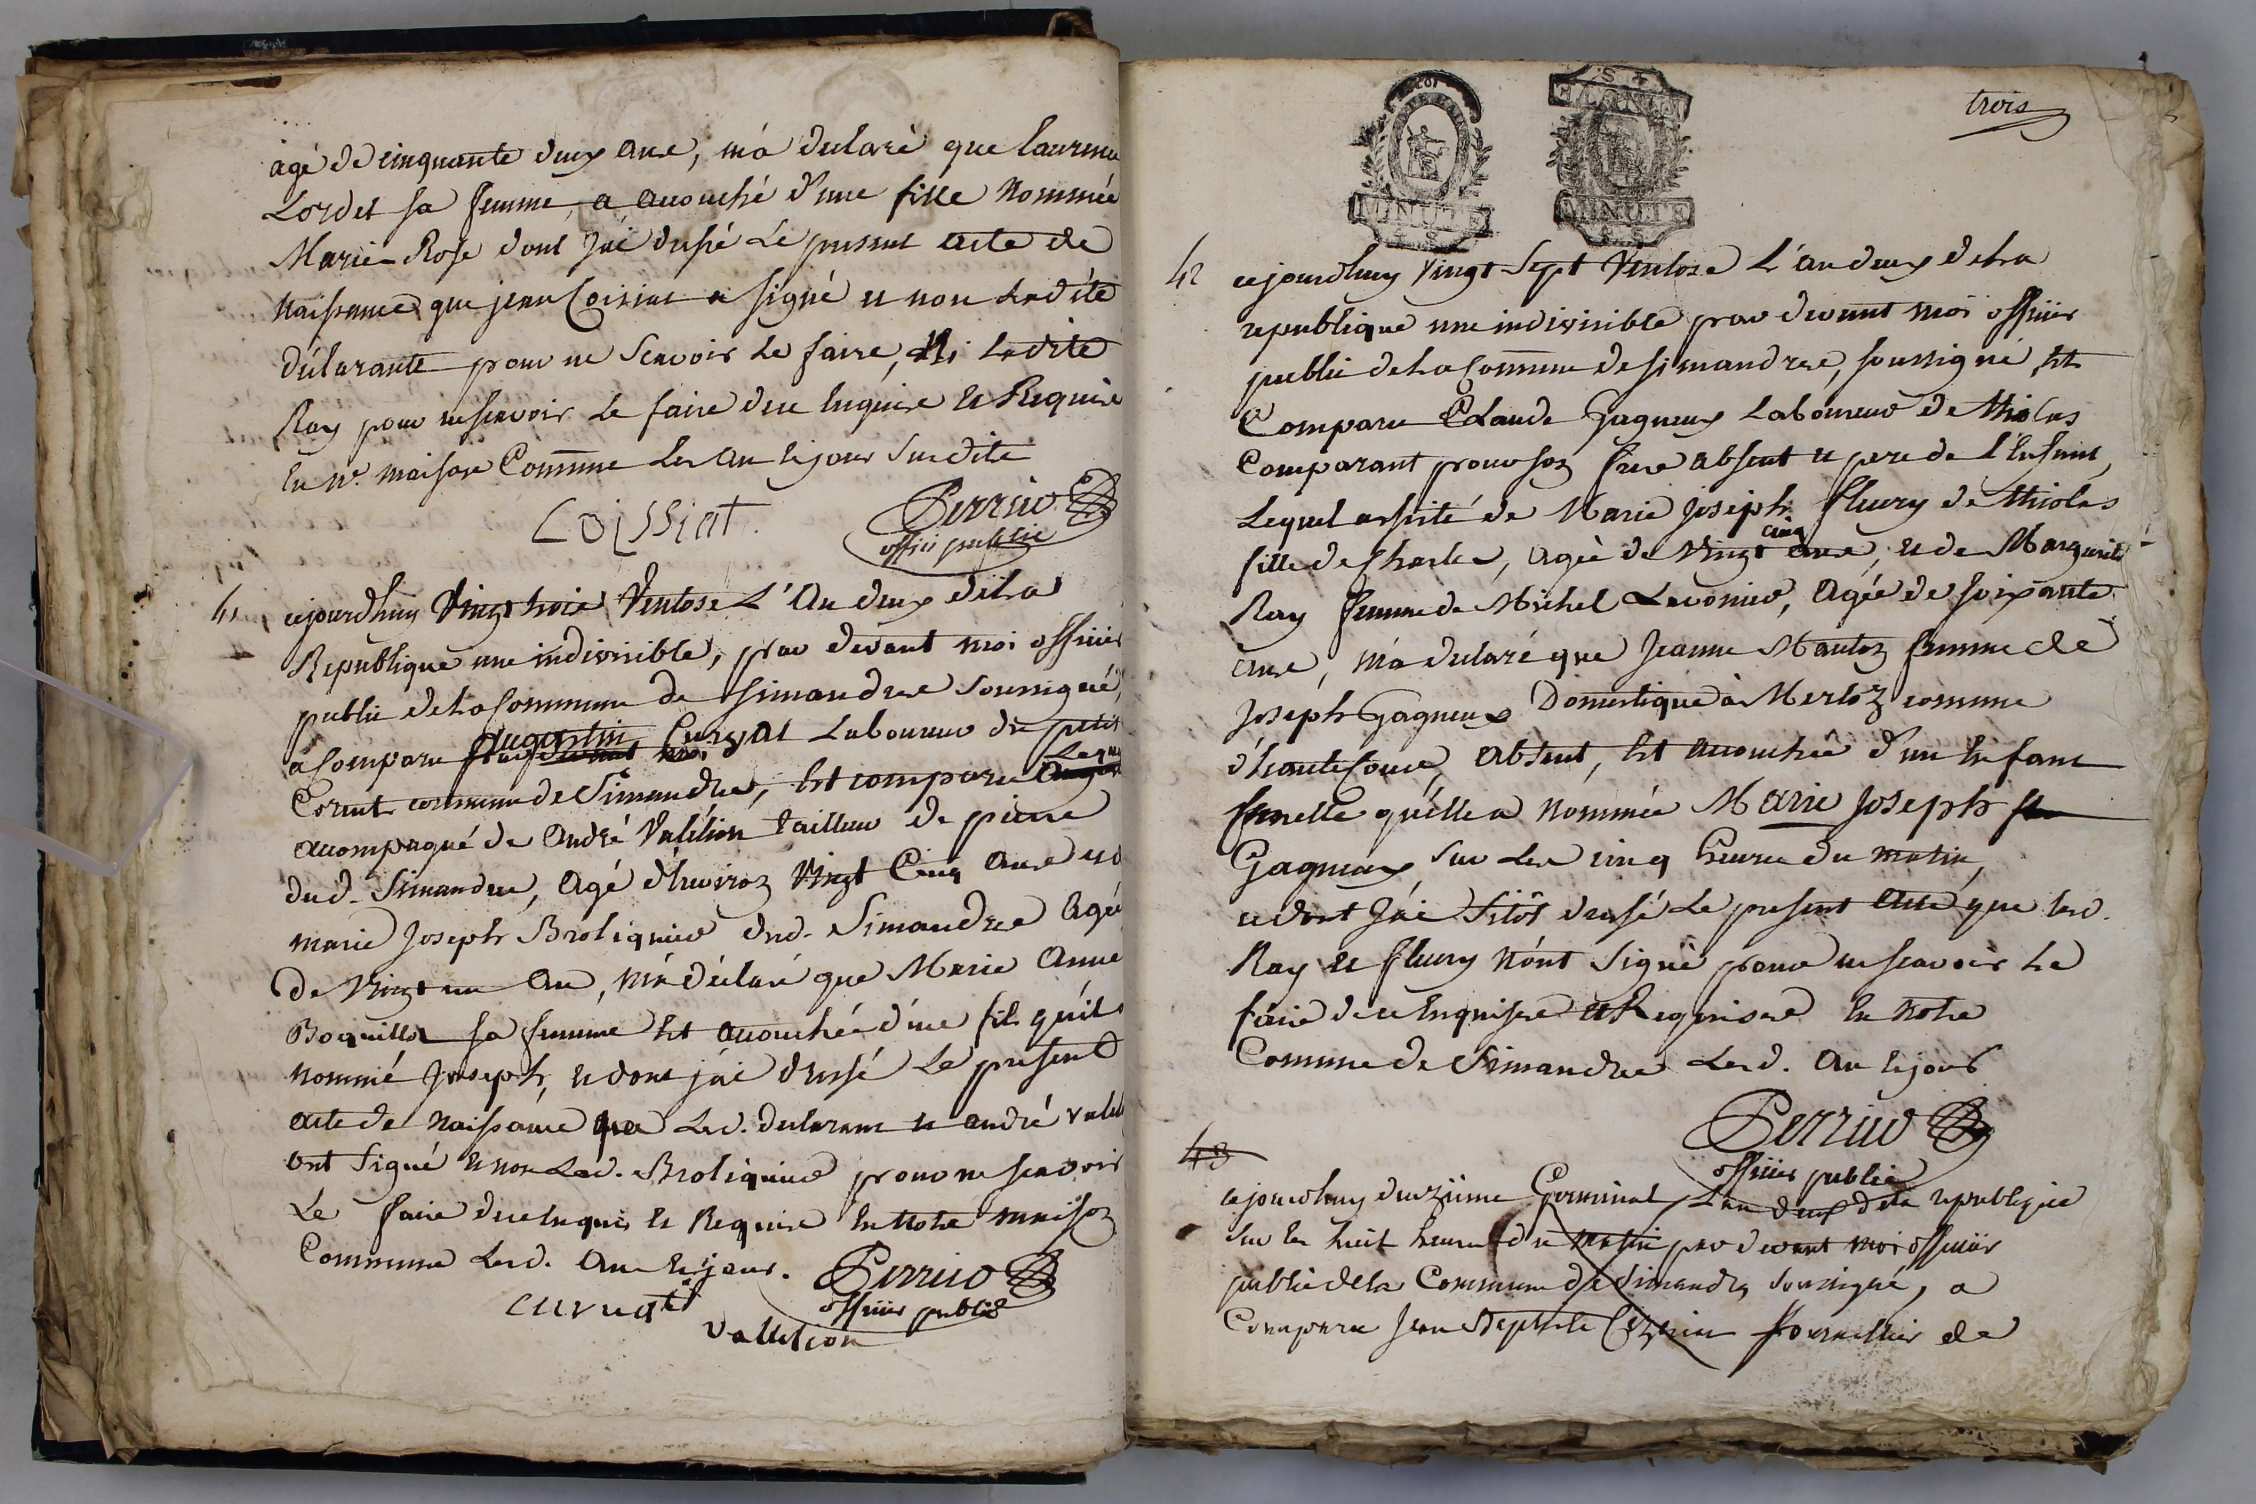 agé de cinquante deux ans, m'a declaré que laurence
Lordet sa femme, a accouché d'une fille nommée
Marie Rose dont j'ai dressé Le present acte de
naissance que jean Coissiat a signé et non Ladite
déclarante pour ne scavoir Le faire, Ni Ladite
Ray pour ne scavoir Le faire de ce Enquise Et Requise
En nre. maison Commune Les an et jour Susdits
Coissiat
Perrier
officier public
41 cejourdhuy Vingt trois Ventose L'An deux de la
Republique une indivisible, par devant moi officier
public de la Commune de Simandre soussigné,
a Comparu Augustin Curvat Laboureur de petit
Corent commune de Simandre, Est comparu Lequel
accompagné de André Valition tailleur de pierre
dud. Simandre, Agé d'environ Vingt Cinq ans et
marie Joseph Broliquier dud. Simandre Agée
de Vingt un An, m'a déclaré que Marie Anne
Boquillod sa femme Est accouchée d'un fils qu'il a
nommé Joseph, et dont j'ai dressé Le present
acte de naissance que Led. declarant et andré valit
ont signé et non Lad. Broliquier pour ne scavoir
Le faire de ce Enquis Et Requise En Notre maison
Commune Lesd. An et jour.
Perrier
officier public
curvat
valition
trois
MINUTE
MINUTE
42 cejourdhuy Vingt Sept Ventose L'an deux de La
republique une indivisible par devant moi officier
public de la Commune de Simandre, soussigné, Est
Comparu Claude Gagneux Laboureur de thiolas
Comparant pour son frere absent et pere de L'Enfant,
Lequel assisté de Marie Joseph fleury de thiolas
fille de Charles, agée de Vingt cinq ans, et de Marguerite
Ray femme de Michel Lavonier, Agée de soixante
ans, m'a declaré que Jeanne Mantoz femme de
Joseph Gagneux Domestique à Merloz commune
d'hautecour, Absent, Est accouchée d'un Enfant
femelle qu'elle a nommée Marie Joseph
Gagneux sur Les cinq heures du matin,
et dont j'ai sitôt dressé Le present acte, que lesd.
Ray et fleury n'ont signé pour ne scavoir Le
faire de ce Enquise et Requises En notre
Commune de Simandre Lesd. An et jour
Perrier
officier public
43
cejourdhuy deuxieme Germinal, L'an deux de la republique
sur les huit heures du matin par devant moi officier
public de la Commune de Simandre soussigné, a
Comparu Jean Baptiste de